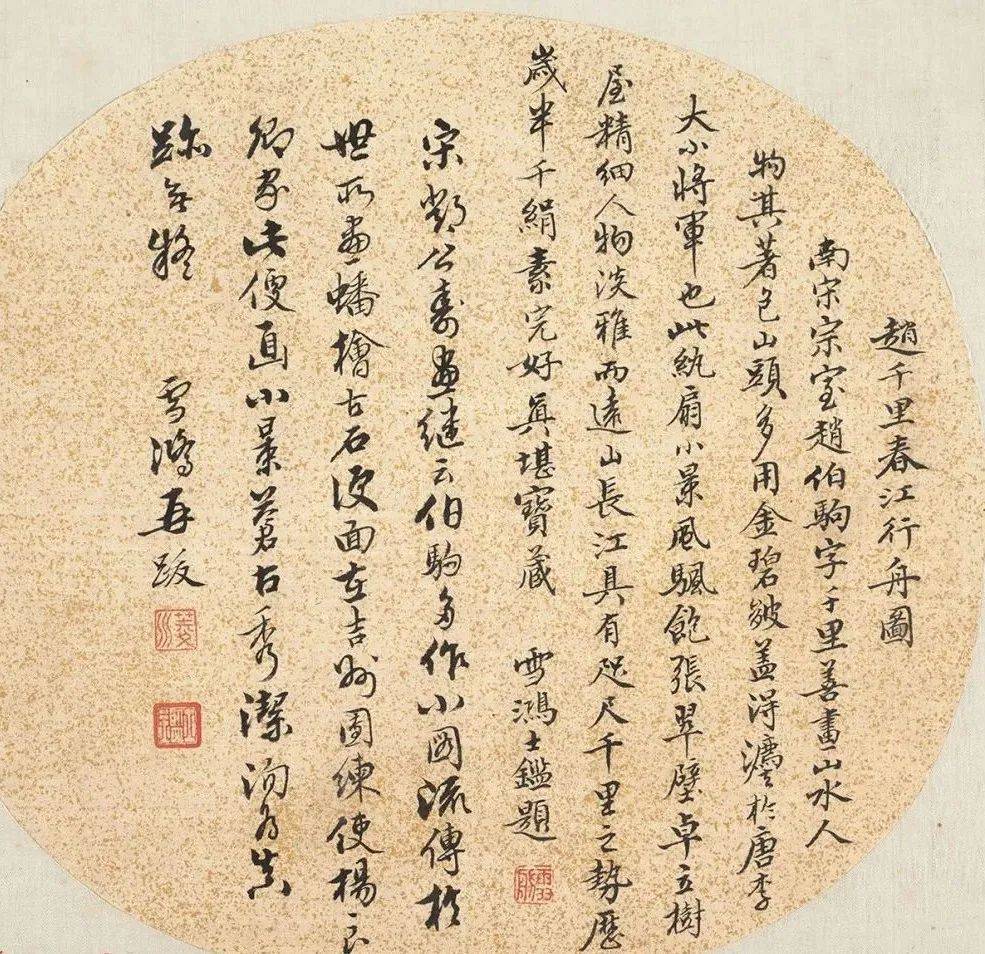 趙千里春江行舟圖
南宋宗室趙伯駒字千里善畫山水人
物其著色山頭多用金碧皴蓋得灋於唐李
大小將軍也此紈扇小景風颿飽張翠壁卓立樹
屋精細人物淡雅而遠山長江具有咫尺千里之勢歷
歲半千絹素完好眞堪寶藏 雪鴻士鑑題
宋鄧公壽畫繼云伯駒多作小圖流傳於
世所畫蟠檜古石便面在吉州團練使楊良
卿家此便面小景蒼古秀潔洵爲真
跡無疑
雪鴻再跋